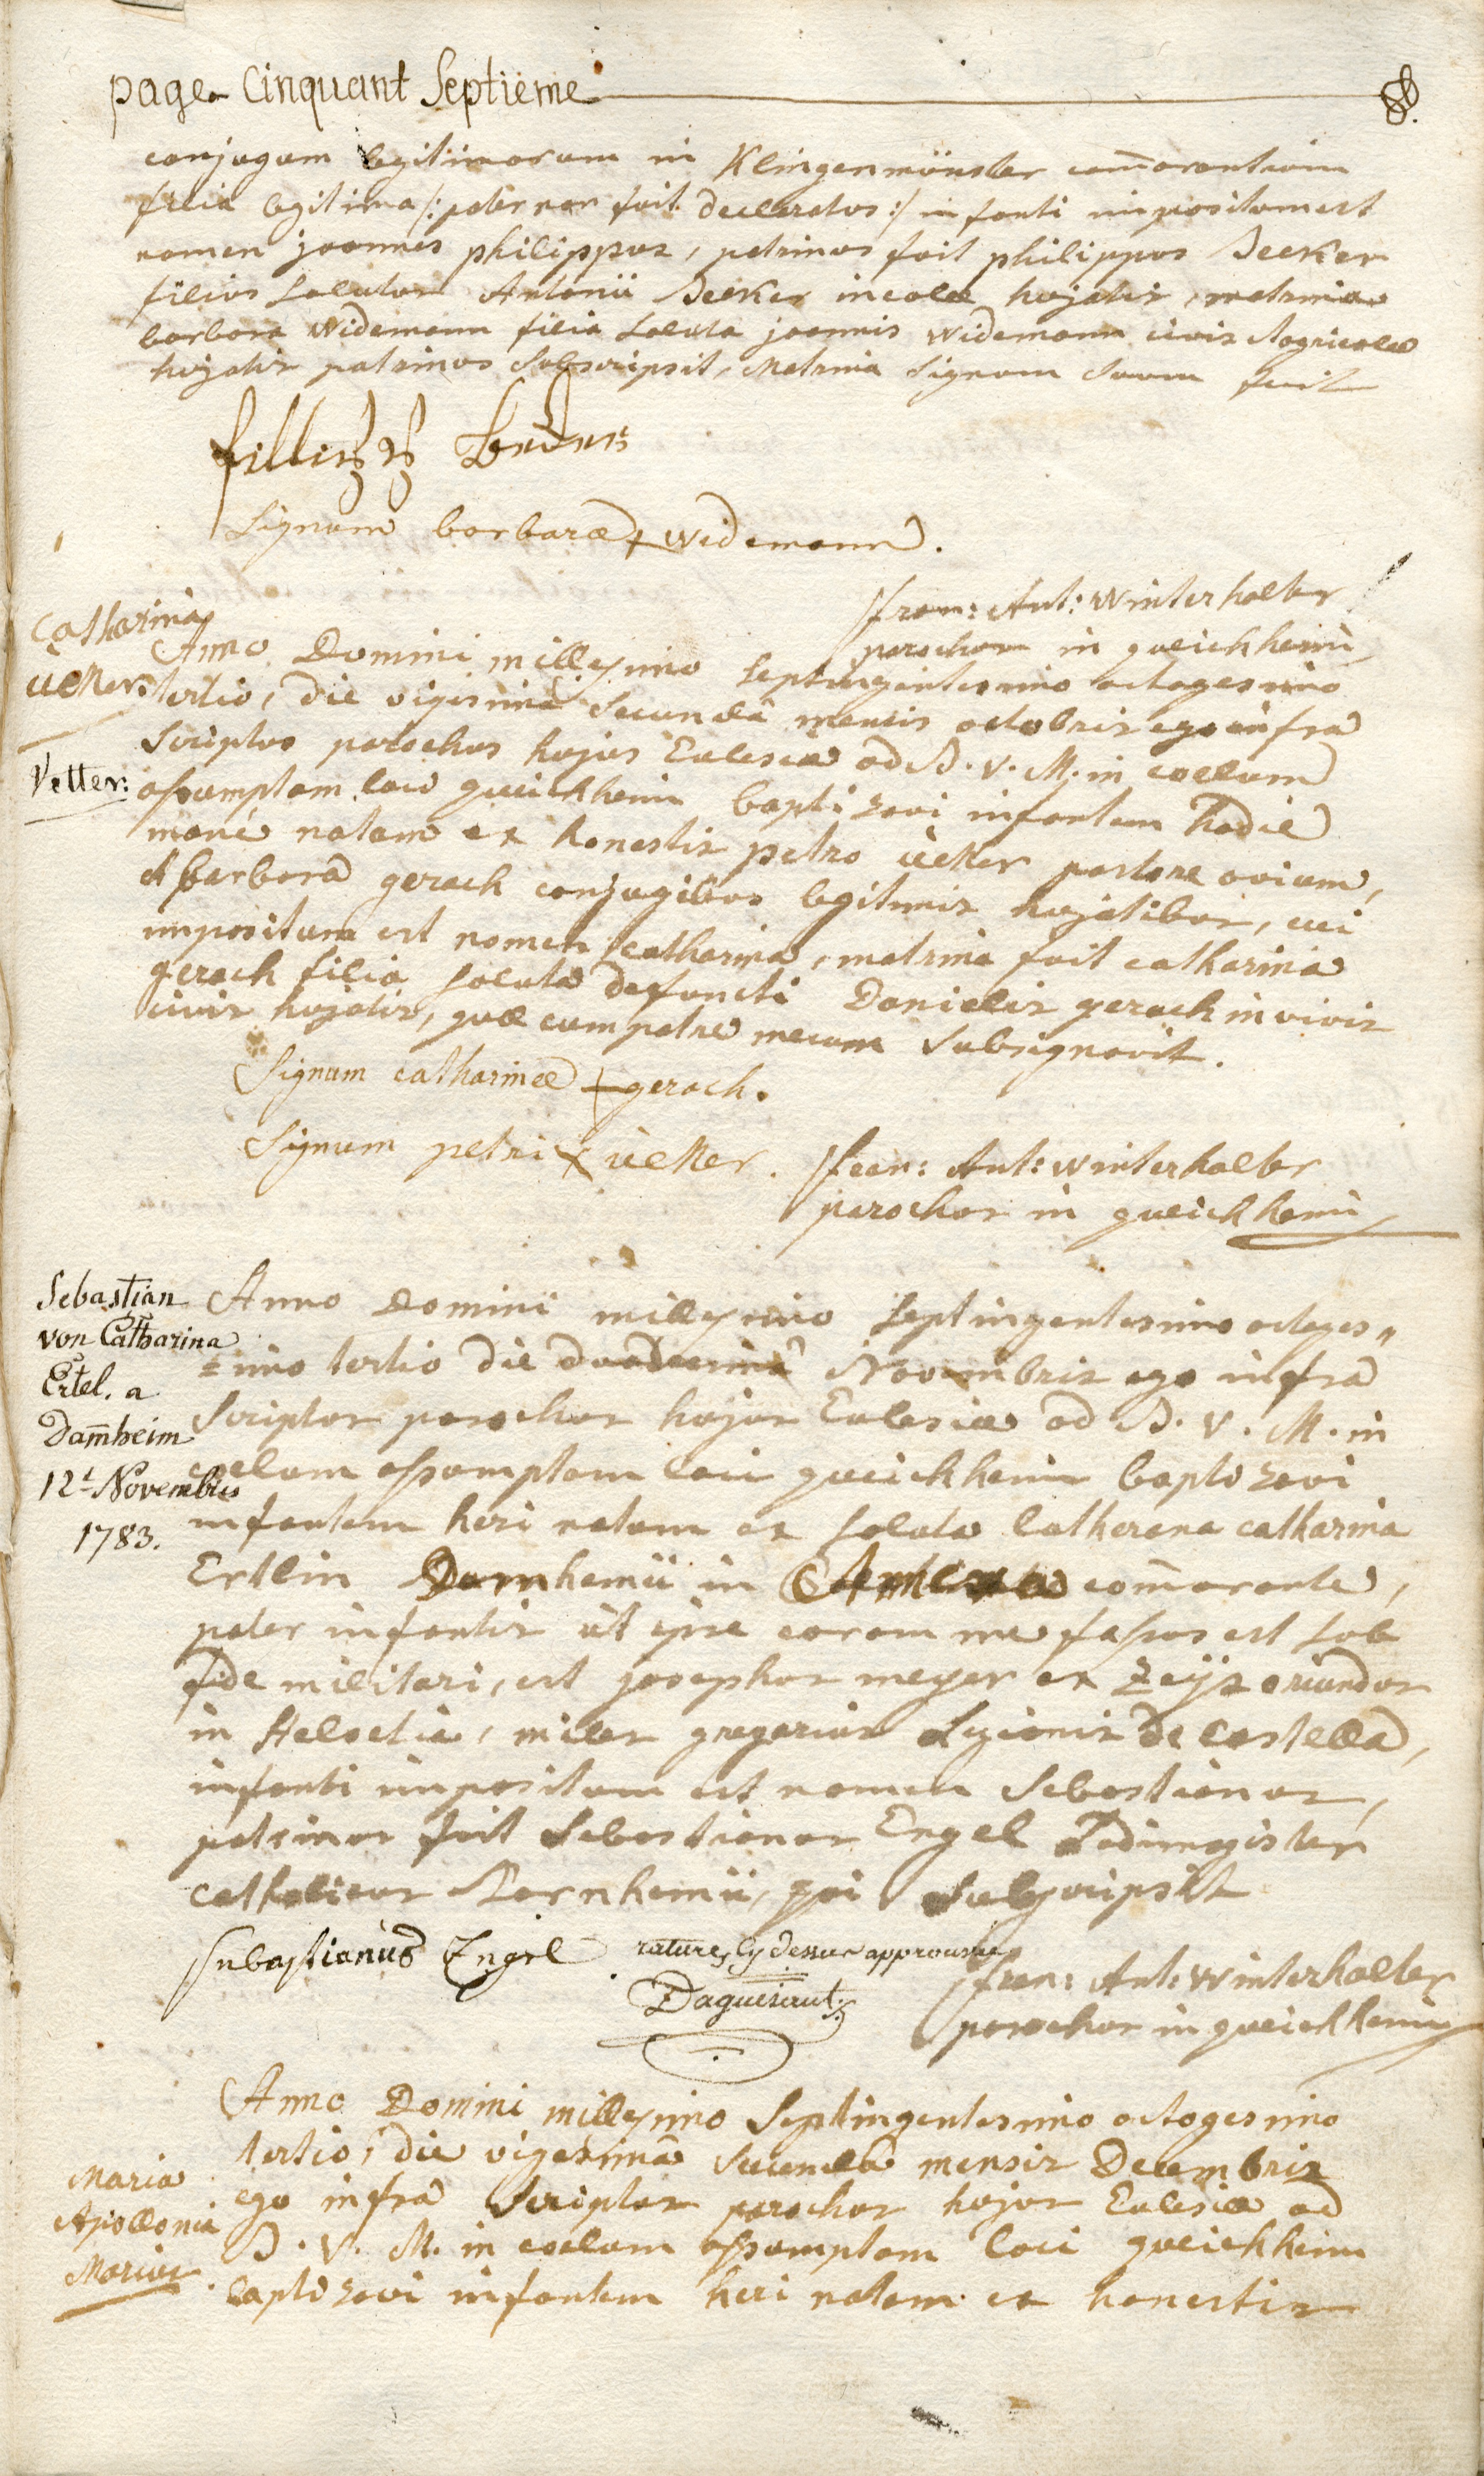 page Cinquant Septiëme
conjugum legitimorum in Klingenmünster com̄orantium
filia legitima /: pater non fuit declaratus :/ infanti impositum est
nomen joannes philippus, patrinus fuit philippus Becker
filius solutus Antonii Becker incolæ hujatis, matrina
barbara Widemann filia soluta joannis Widemann civis Agricolæ
hujatis patrinus subscripsit, Matrina signum suum fecit
Signum barbaræ + Widemann.
fran: Ant: Winterhalter
parochus in queichheim
Catharina
ücker
Vetter:
Anno Domini millesimo septingentesimo octogesimo
tertio, die vigesimâ secundâ mensis octobris ego infra
scriptus parochus hujus Ecclesiæ ad B. V. M. in coelum
assumptam loci queichheim baptizavi infantem hodie
mane natam ex honestis petro ücker pastore ovium,
et barbarâ gerach conjugibus legitimis hujatibus, cui
impositum est nomen catharina, matrina fuit catharina
gerach filia soluta defuncti Danielis gerach in vivis
civis hujatis, quæ cum patre mecum subsignavit.
Signum catharinæ + gerach.
Signum petri x ücker.
fran: Ant: Winterhalter
parochus in queichheim
Sebastian
von Catharina
Ertel. a
Dam̄heim
12t Novembris
1783.
Anno Domini millesimo septingentesimo octoges„
=imo tertio die duodecimâ Novembris ego infra
scriptus parochus hujus Ecclesiæ ad B. V. M. in
coelum assumptam loci queichheim baptizavi
infantem heri natum ex soluta lutherana catharina
Ertlin Damhemii in com̄orante,
pater infantis ut ipse coram me fassus est sub
fide militari, est josephus meyer ex Zeijs oriundus
in Helvetia, miles gregarius Legionis de Castella,
infanti impositum est nomen Sebastianus,
patrinus fuit Sebastianus Engel Ludimagister
catholicus Dornhemii, qui subscripsit
Subastianus Engel
ratures cy dessus approuvée
fran: Ant: Winterhalter
parochus in queichheim
Maria
Apollonia
Anno Domini millesimo septingentesimo octogesimo
tertio, die vigesimâ secundâ mensis Decembris
ego infra scriptus parochus hujus Ecclesiæ ad
B. V. M. in coelum assumptam loci queichheim
baptizavi infantem heri natam ex honestis